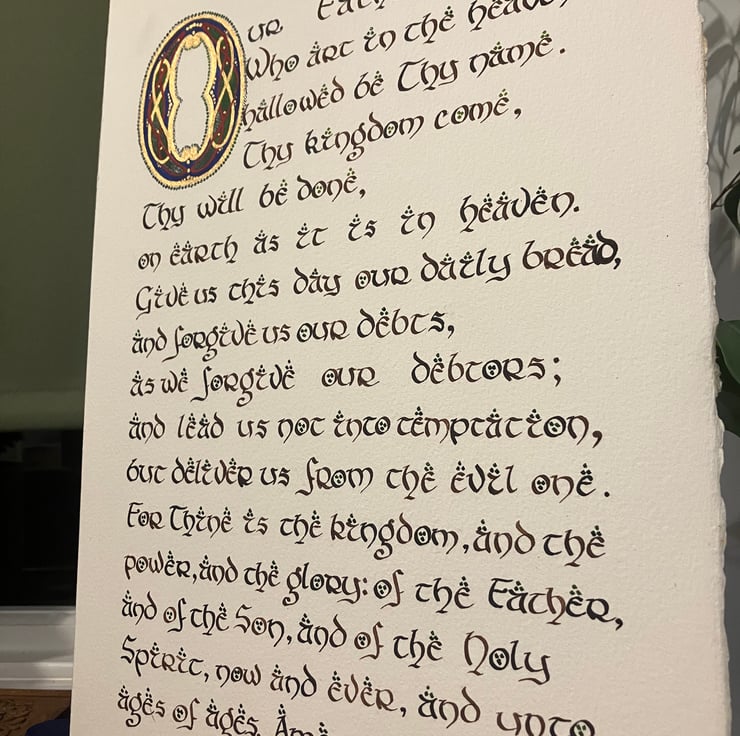 Our Fath
Who art in the heaven,
hallowed be Thy name.
Thy kingdom come,
Thy will be done,
on earth as it is in heaven.
Give us this day our daily bread,
and forgive us our debts,
as we forgive our debtors;
and lead us not into temptation,
but deliver us from the evil one.
For Thine is the kingdom, and the
power, and the glory: of the Father,
and of the Son, and of the Holy
Spirit, now and ever, and unto
ages of ages. Ame